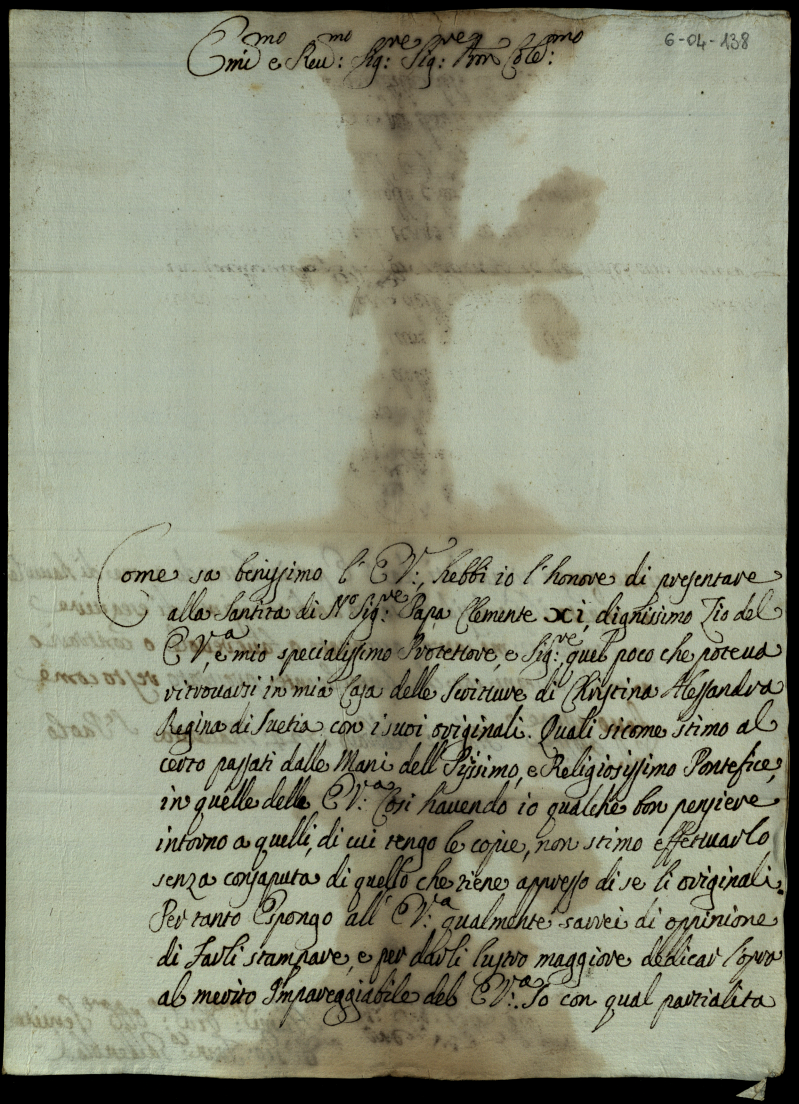 6-04-138
Em:mo e Reu:mo Sig:re Sig:re Pron Cole:mo
Come sa benissimo l'E.V:, hebbi io l'honore di presentare
alla Santita di N.ro Sig:re Papa Clemente XI, dignissimo Zio del
E.V:a, e mio specialissimo Protettore, e Sig:re, quel poco che poteua
ritrouarsi in mia Casa delle Scritture di Christina Alessandra
Regina di Suetia con i suoi originali. Quali sicome stimo al
certo passati dalle Mani dell'Pijssimo, e Religiosissimo Pontefice,
in quelle delle E.V:a Cosi hauendo io qualche bon pensiere
intorno a quelli, di cui tengo le copie, non stimo effettuarlo
senza consaputa di quello che tiene appresso di se li originali.
Per tanto Espongo all'E.V:a qualmente sarrei di oppinione
di farli stampare, e per darli lustro maggiore dedicar l'opra
al merito Impareggiabile del E.V:a. Io con qual partialita